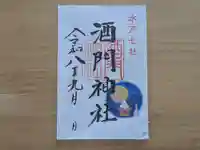 水戸七社
酒門神社
令和八年九月 日